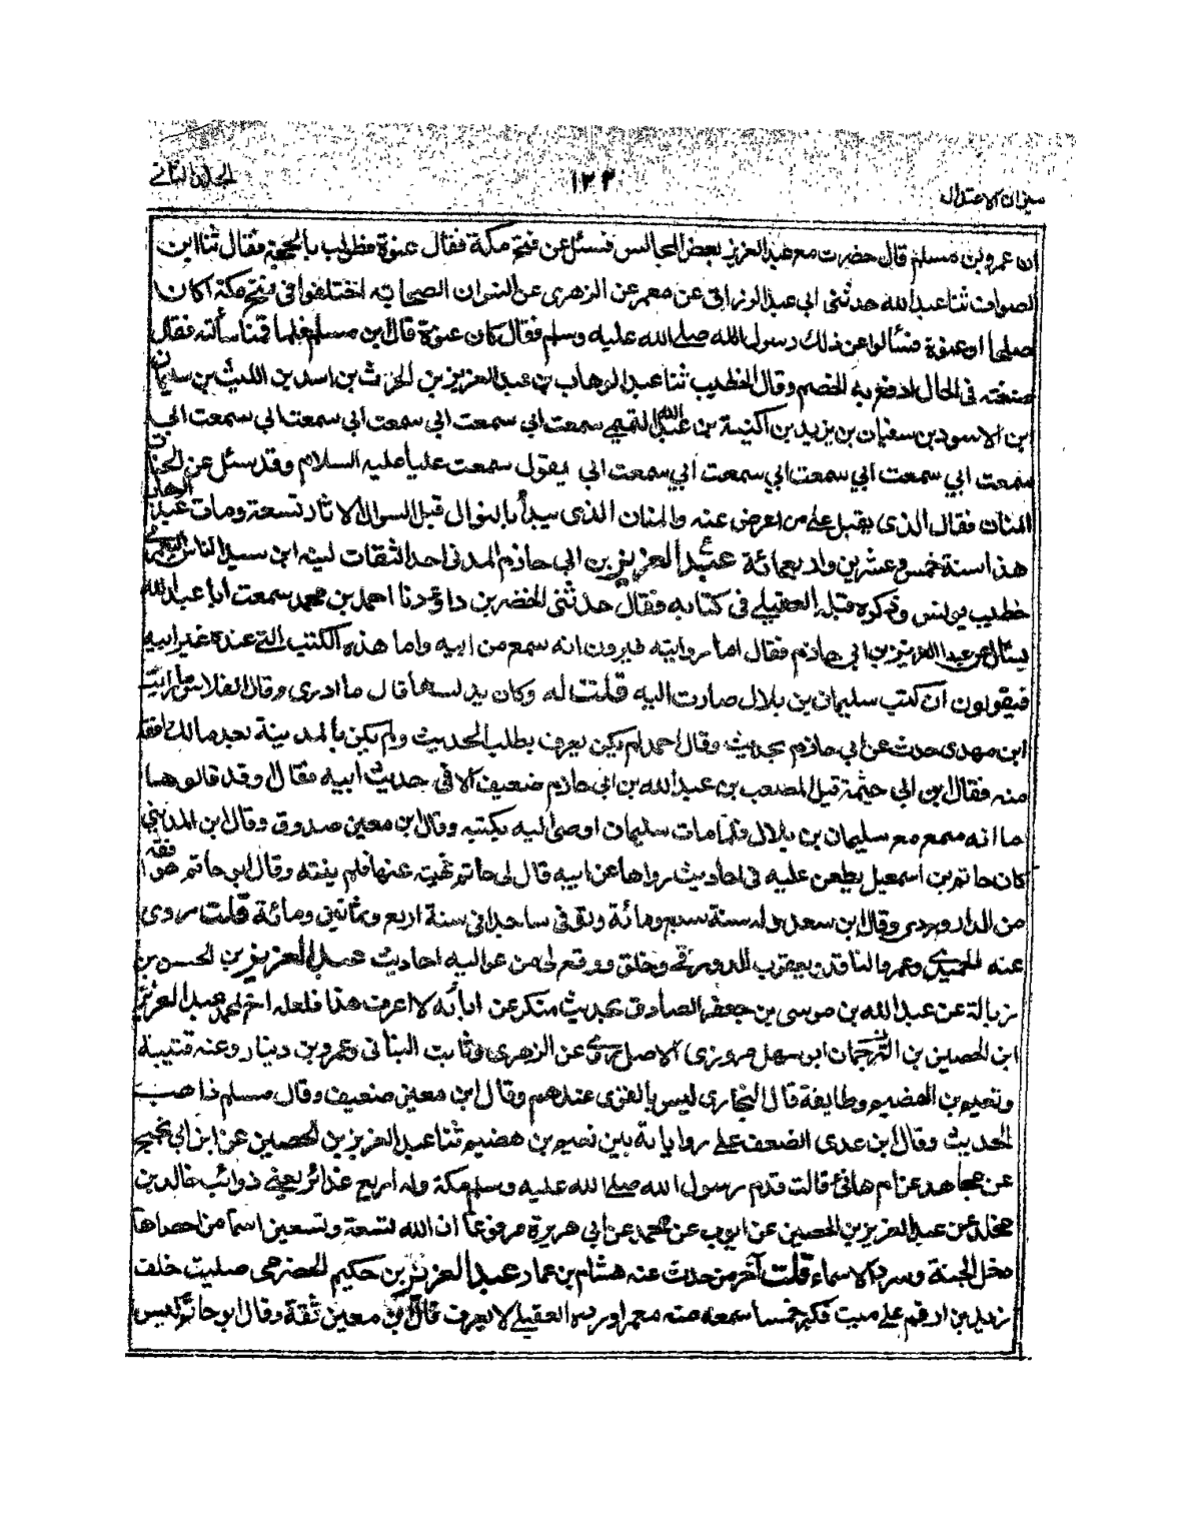 ميزان الاعتدال
١٢٣
الجلد الثاني
ان عمرو بن مسلم قال حضرت مع عبد العزيز بعض المجالس فسئل عن فتح مكة فقال عنوة فطولب بالحجة فقال ثنا ابن
الصواف ثنا عبد الله حدثنى ابى عبد الرزاق عن معمر عن الزهرى عن انس ان الصحابة اختلفوا فى فتح مكة اكان
صلحا او عنوة فسألوا عن ذلك رسول الله صلى الله عليه وسلم فقال كان عنوة قال ابن مسلم فلما قمنا سألته فقال
صنعته فى الحال ادفع به الخصم وقال الخطيب ثنا عبد الوهاب بن عبد العزيز بن الحرث بن اسد بن الليث بن سليمان
ابن الاسود بن سفيان بن يزيد بن اكنية بن عبد الله التميمى سمعت ابى سمعت ابى سمعت ابى سمعت ابى سمعت ابى
سمعت ابى سمعت ابى سمعت ابى سمعت ابى سمعت ابى يقول سمعت عليا عليه السلام وقد سئل عن الحنان
المنان فقال الذى يقبل على من اعرض عنه والمنان الذى يبدأ بالنوال قبل السوال الاثار تسعة ومات عبد الوهاب
هذا سنة خمس وعشرين واربعمائة عبد العزيز بن ابى حازم المدنى احد الثقات لينه ابن سيد الناس
خطيب تونس وذكره قبله العقيلى فى كتابه فقال حدثنى الخضر بن داود نا احمد بن محمد سمعت ابا عبد الله
يسأل عن عبد العزيز بن ابى حازم فقال اما روايته فيرون انه سمع من ابيه واما هذه الكتب التى عنده غير ابيه
فيقولون ان كتب سليمان بن بلال صارت اليه قلت له وكان يدلسها قال ما ادرى وقال الفلاس ما رايت
ابن مهدى حدث عن ابى حازم بحديث وقال احمد لم يكن يعرف بطلب الحديث ولم يكن بالمدينة بعد مالك افقه
منه فقال ابن ابى خيثمة قيل لمصعب بن عبد الله بن ابى حازم ضعيف الا فى حديث ابيه فقال او قد قالوها
ما انه سمع مع سليمان بن بلال فلما مات سليمان اوصى اليه بكتبه وقال ابن معين صدوق وقال ابن المدينى
كان حاتم بن اسمعيل يطعن عليه فى احاديث رواها عن ابيه قال لى حاتم نهيته عنها فلم ينته وقال ابو حاتم هو افقه
من الداروردى وقال ابن سعد ولد سنة سبع ومائة وتوفى ساجدا فى سنة اربع وثمانين ومائة قلت روى
عنه الحميدى وعمرو الناقد ويعقوب الدورقى وخلق ووقع لى من عواليه احاديث عبد العزيز بن الحسن بن
زبالة عن عبد الله بن موسى بن جعفر الصادق بحديث منكر عن ابائه لا اعرف هذا فلعله اخ لمحمد عبد العزيز
ابن الحصين بن الترجمان ابو سهل مروزى الاصل روى عن الزهرى وثابت البنانى وعمرو بن دينار وعنه قتيبة
ونعيم بن الهضيم وطايفة قال البخارى ليس بالقوى عندهم وقال ابن معين ضعيف وقال مسلم ذاهب
الحديث وقال ابن عدى الضعف على رواياته بين نعيم بن هضيم ثنا عبد العزيز بن الحصين عن ابن ابى نجيح
عن مجاهد عن ام هانئ قالت قدم رسول الله صلى الله عليه وسلم مكة وله اربع غدائر يعنى ذوائب خالد بن
مخلد عن عبد العزيز بن الحصين عن ايوب عن محمد عن ابى هريرة مرفوعا ان الله تسعة وتسعين اسما من احصاها
دخل الجنة وسرد الاسماء قلت آخر من حدث عنه هشام بن عمار عبد العزيز بن حكيم الحضرمى صليت خلف
زيد بن ارقم على ميت فكبر خمسا سمعه منه معمر اورده العقيلى لا يعرف قال ابن معين ثقة وقال ابو حاتم ليس